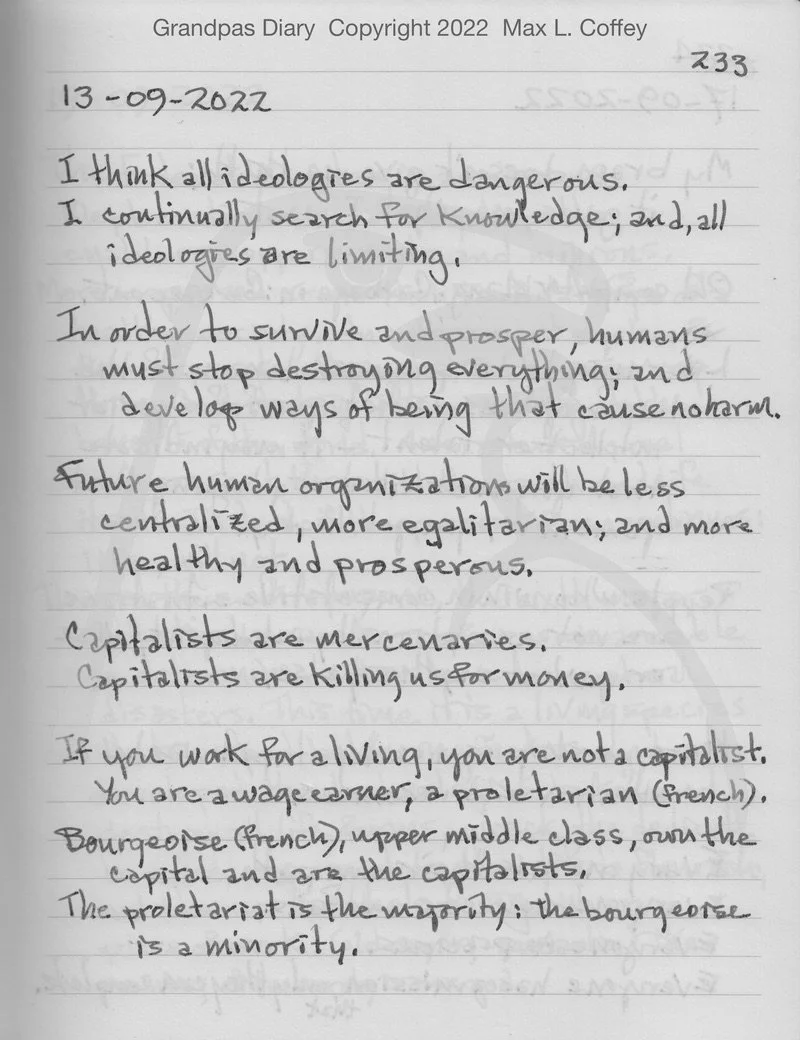 Grandpas Diary Copyright 2022 Max L. Coffey
233
13-09-2022
I think all ideologies are dangerous.
I continually search for knowledge; and, all
ideologies are limiting.
In order to survive and prosper, humans
must stop destroying everything; and
develop ways of being that cause no harm.
Future human organizations will be less
centralized, more egalitarian; and more
healthy and prosperous.
Capitalists are mercenaries.
Capitalists are killing us for money.
If you work for a living, you are not a capitalist.
You are a wage earner, a proletarian (french).
Bourgeoise (french), upper middle class, own the
capital and are the capitalists.
The proletariat is the majority: the bourgeoise
is a minority.